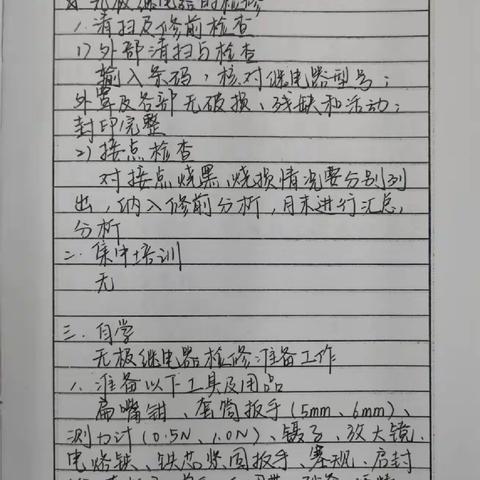 对无极继电器的检修
1.清扫及修前检查
1)外部清扫与检查
输入条码,核对继电器型号;
外罩及各部无破损、残缺和活动;
封印完整
2)接点检查
对接点烧黑、烧损情况要分别列
出,纳入修前分析,月末进行汇总,
分析
二.集中培训
无
三.自学
无极继电器检修准备工作
1.准备以下工具及用品
扁嘴钳、套筒扳手(5mm、6mm)、
测力计(0.5N、1.0N)、镊子、放大镜、
电烙铁、铁芯紧固扳手、塞规、启封